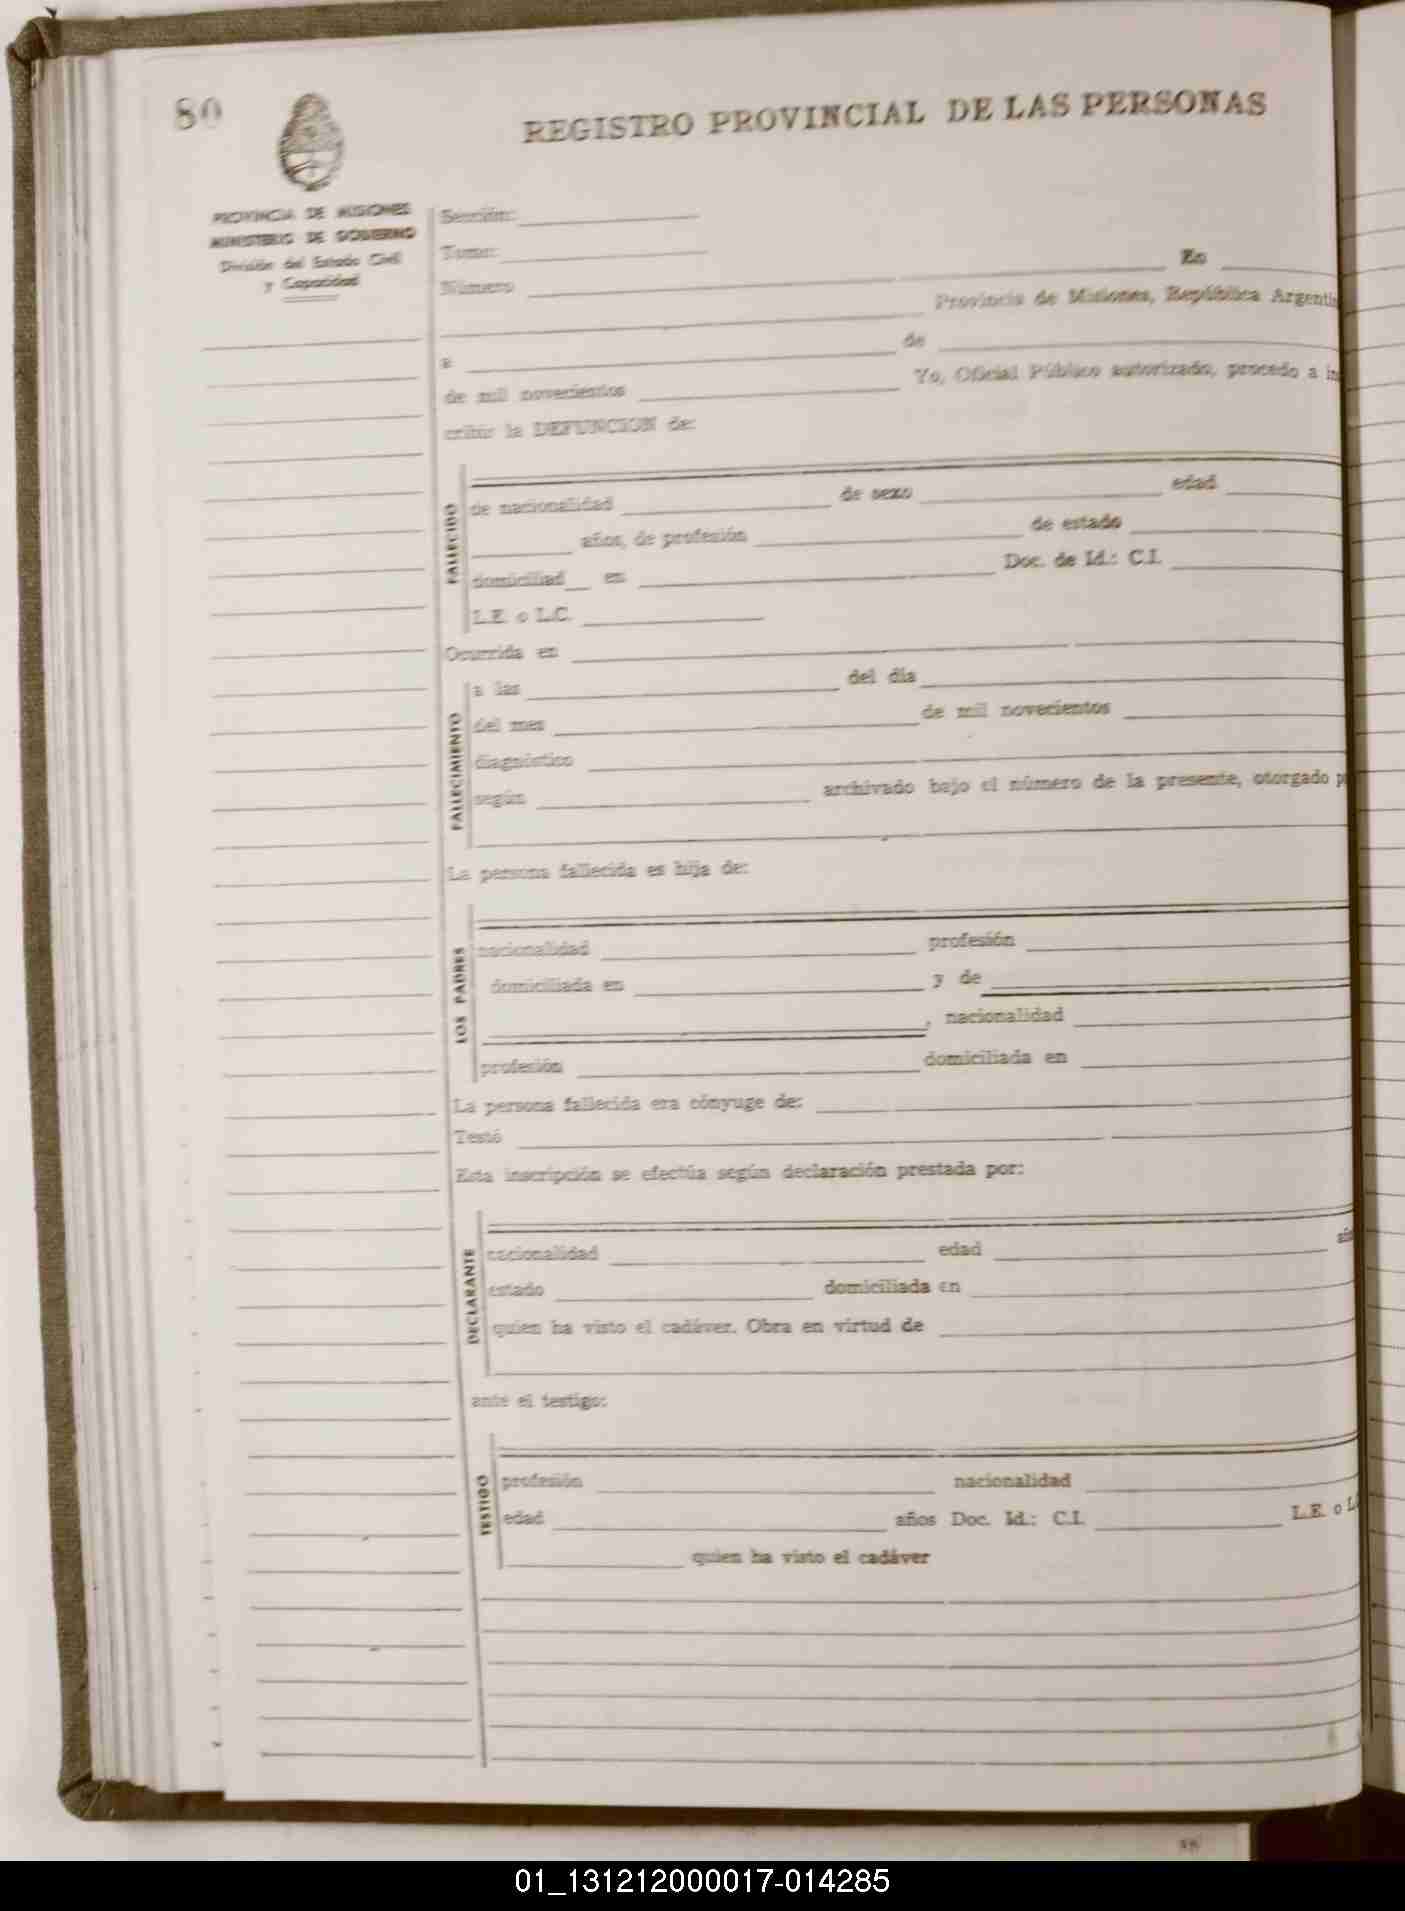 80
REGISTRO PROVINCIAL DE LAS PERSONAS
PROVINCIA DE MISIONES
MINISTERIO DE GOBIERNO
División del Estado Civil
y Capacidad
Sección:
Tomo:
Número En
Provincia de Misiones, República Argenti
a de
de mil novecientos Yo, Oficial Público autorizado, procedo a in
cribir la DEFUNCION de:
FALLECIDO
de nacionalidad de sexo edad
años, de profesión de estado
domiciliad en Doc. de Id.: C.I.
L.E. o L.C.
Ocurrida en
FALLECIMIENTO
a las del día
del mes de mil novecientos
diagnóstico
según archivado bajo el número de la presente, otorgado p
La persona fallecida es hija de:
LOS PADRES
nacionalidad profesión
domiciliada en y de
, nacionalidad
profesión domiciliada en
La persona fallecida era cónyuge de:
Testó
Esta inscripción se efectúa según declaración prestada por:
DECLARANTE
nacionalidad edad añ
estado domiciliada en
quien ha visto el cadáver. Obra en virtud de
ante el testigo:
TESTIGO
profesión nacionalidad
edad años Doc. Id.: C.I. L.E. o L
quien ha visto el cadáver
01_131212000017-014285